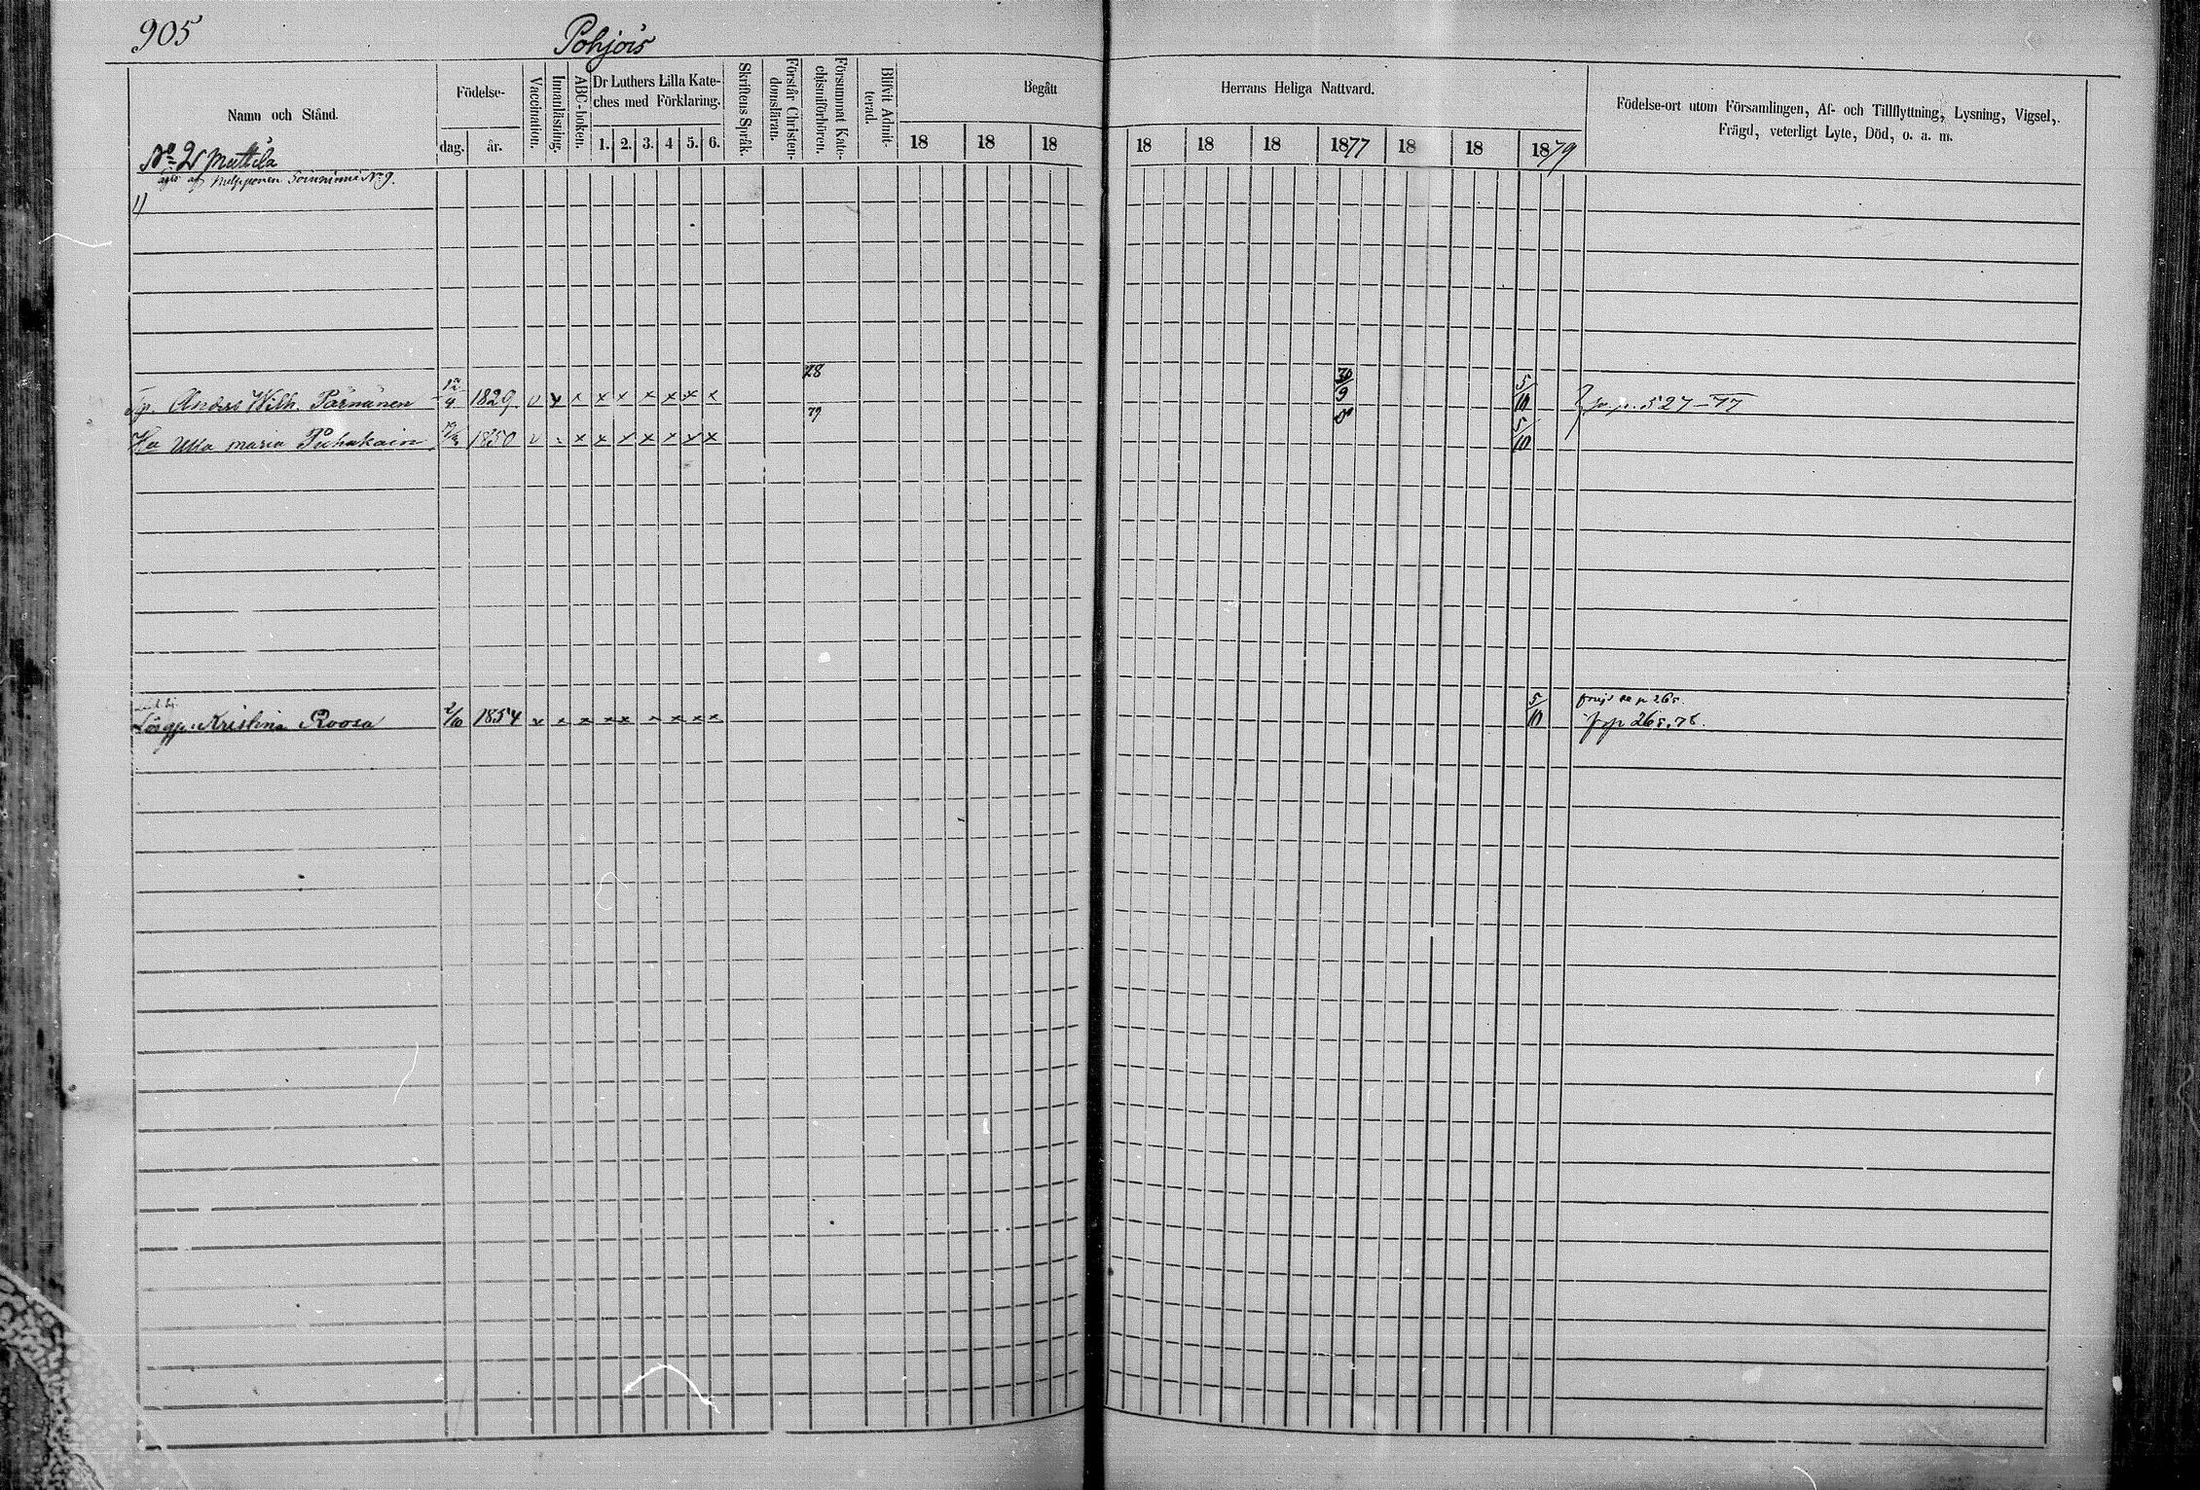 905
Pohjois
Namn och Stånd.
Födelse-
dag.
år.
Vaccination.
Innanläsning.
ABC-boken.
Dr Luthers Lilla Kate-
ches med Förklaring.
1. 2. 3. 4 5. 6.
Skriftens Språk.
Förstår Christen-
domsläran.
Försummat Kate-
chismiförhören.
Blifvit Admit-
terad.
Begått
Herrans Heliga Nattvard.
18 18 18 18 18 18 1877 18 18 1879
Födelse-ort utom Församlingen, Af- och Tillflyttning, Lysning, Vigsel,
Frägd, veterligt Lyte, Död, o. a. m.
No 2 Mattila
af Soininmi No 9.
1)
78
Anders Wilh. Pärnänen 1829 v x x x x x x x x 30/9 5/10 527
79
Maria Puhakain 1850 v x x x x x x x 5/10
frejd se p 265.
Kristina Roosa 2/10 1854 x x x x x x x x x 5/10 265, 78.